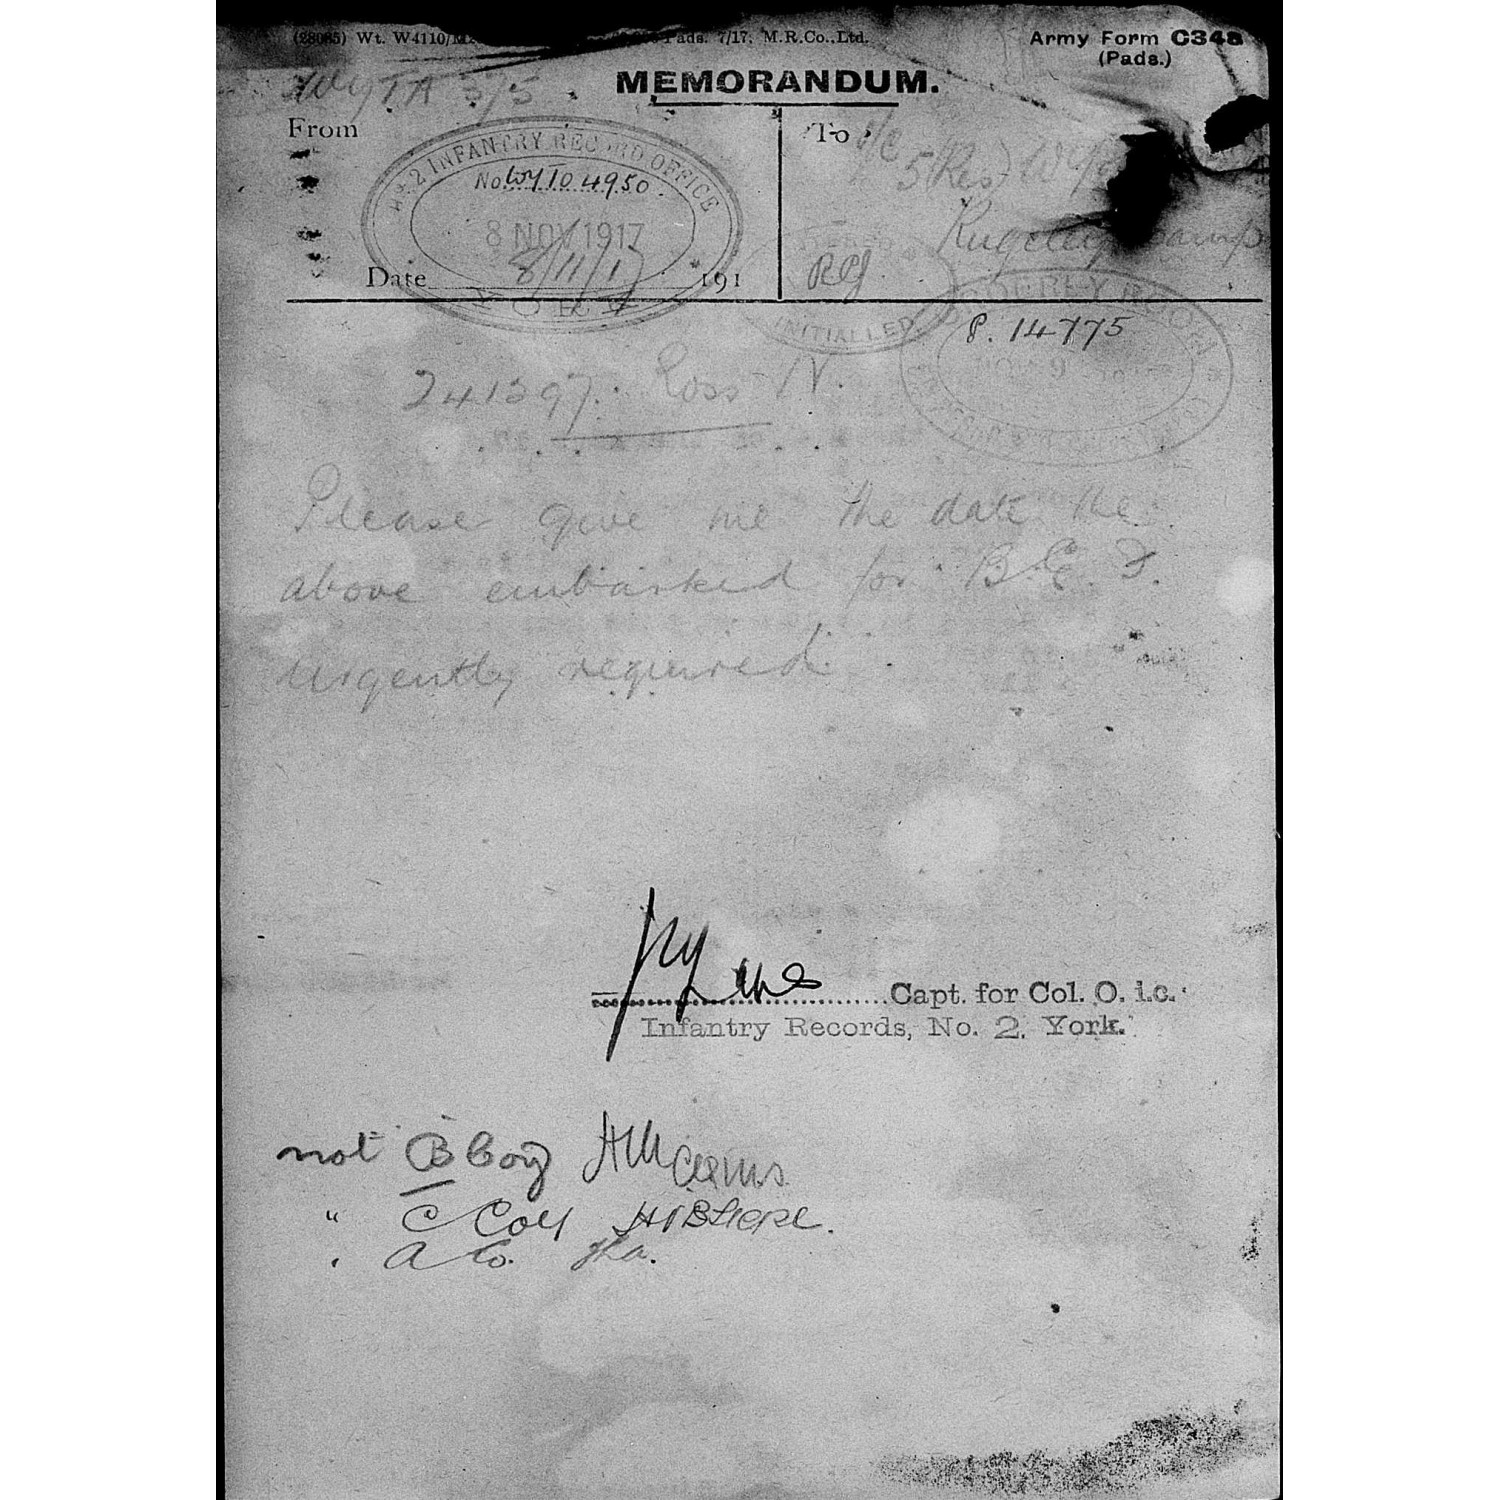 (28085) Wt. W4110/ Pads. 7/17. M.R.Co.,Ltd.
Army Form C348
(Pads.)
MEMORANDUM.
WyTA 3/5
From
To
No. 2 INFANTRY RECORD OFFICE
No. WyTO 4950
8 NOV 1917
YORK
Date 8/11/17 191
O/C 5 (Res)
Rugeley Camp
INITIALLED
ORDERLY ROOM
P. 14775
NOV 9
241397. Ross N.
Please give me the date the
above embarked for B.E.F.
Urgently required.
Capt. for Col. O. i.c.
Infantry Records, No. 2. York.
not B Coy
" C Coy
" A Co.